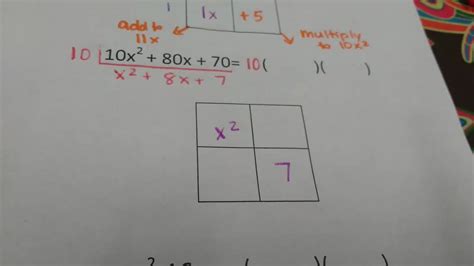 1 1x +5
add to 11x
multiply to 10x²
10 10x² + 80x + 70= 10( )( )
x² + 8x + 7
x²
7